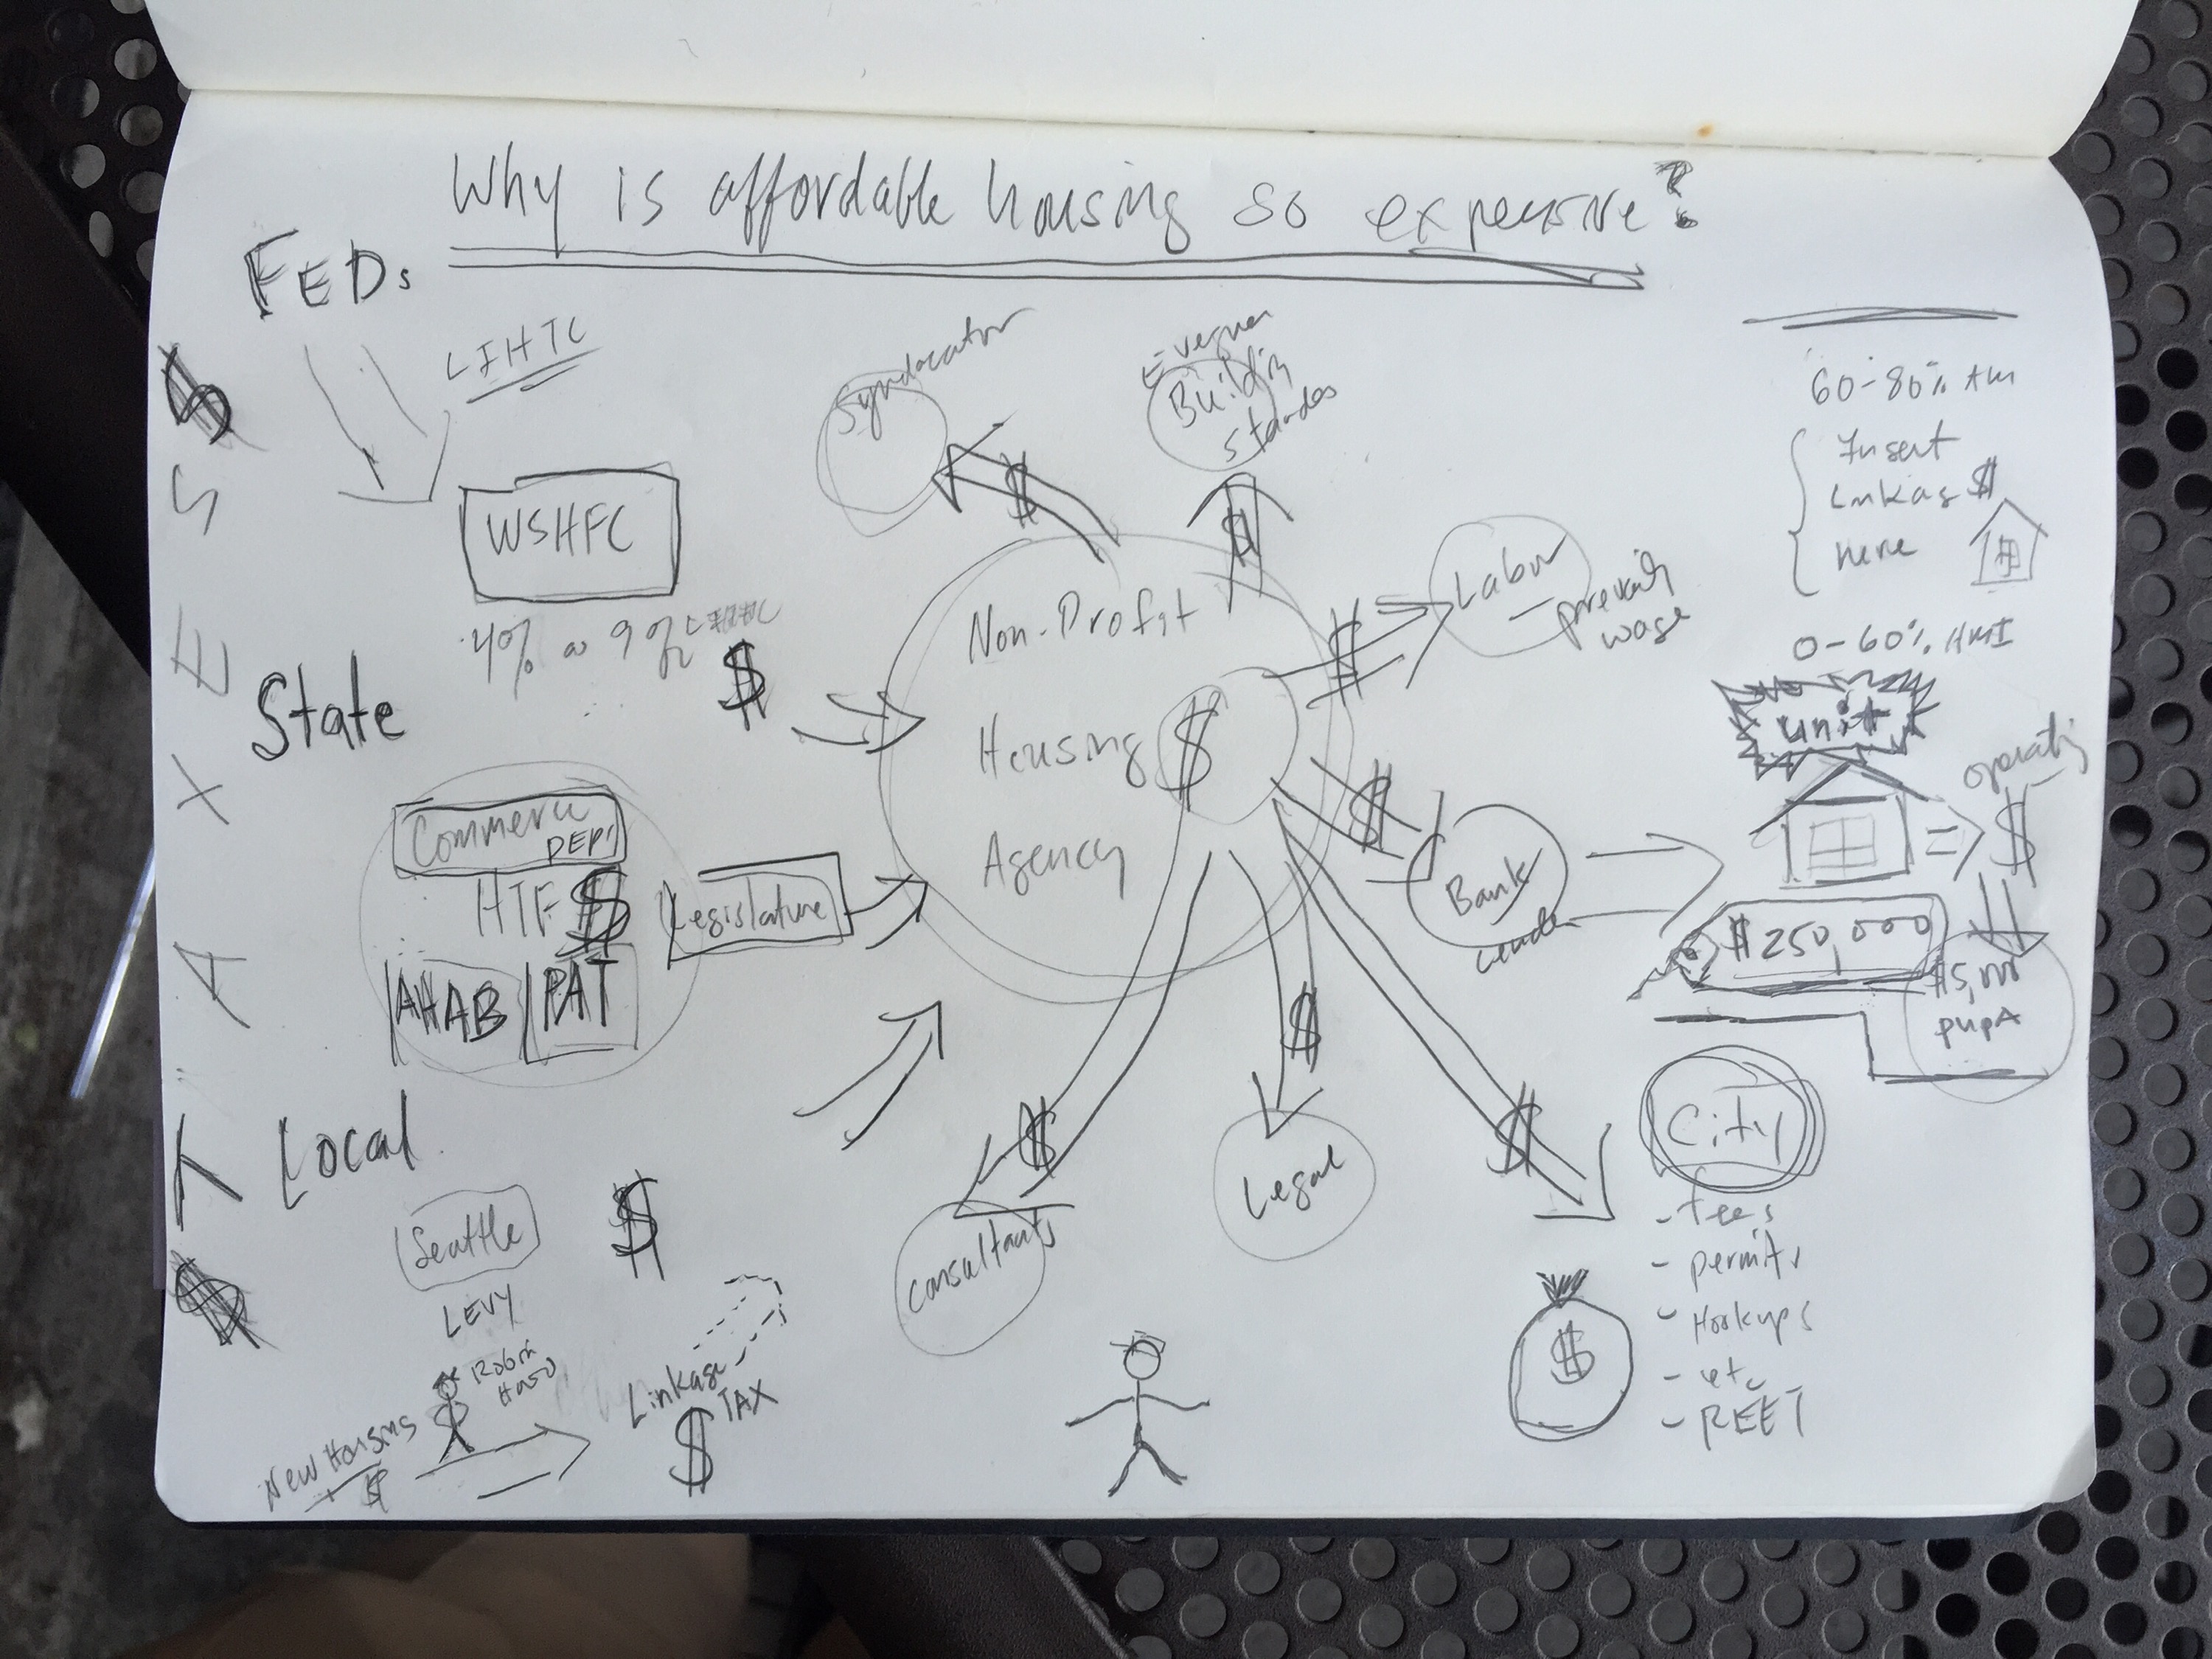 Why is affordable housing so expensive?
FEDs
LIHTC
$ TAXES $
WSHFC
4% or 9% LIHTC
$
State
Commerce
DEPT
HTF $
AHAB PAT
Legislature
Local
Seattle
LEVY
$
Robin
Hood
New Housing
$
Linkage
TAX
$
Non-Profit
Housing $
Agency
Syndicator
$
Building
Standes
$
Labor
- prevailing
wage
$
Bank
Lender
$
consultants
$
Legal
$
City
- fees
- permits
- Hookups
- etc
- REET
$
$
60-80% AMI
Insert
Linkag $
Here
0-60% AMI
unit
operating
$
$250,000
$5,000
pupA